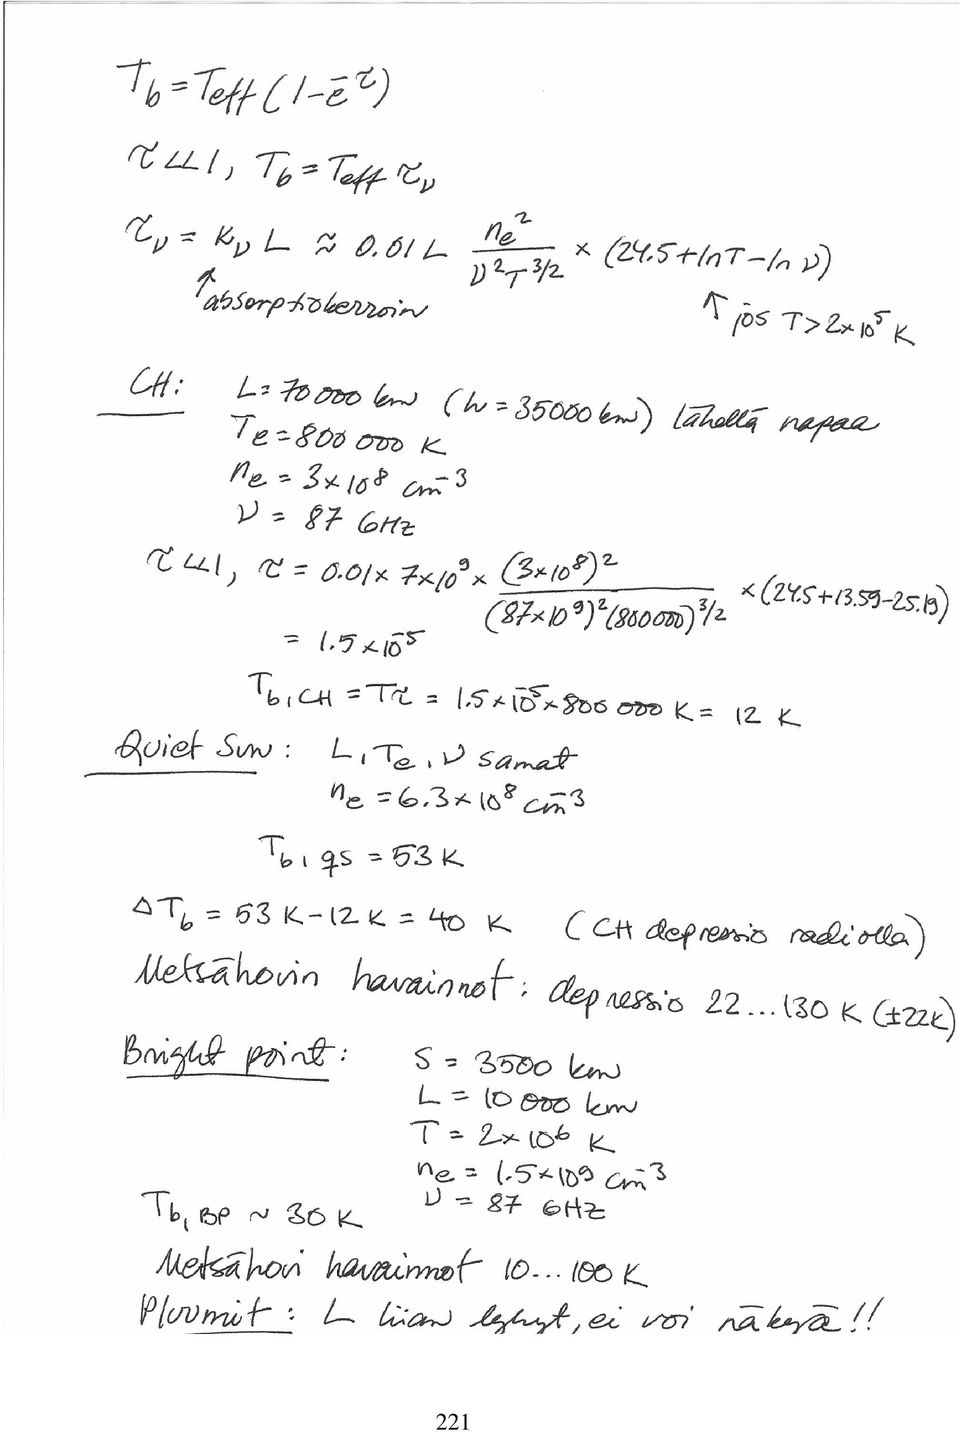 T_b = Teff (1-e^-τ)
τ << 1, T_b = Teff τ_ν
τ_ν = κ_ν L ≈ 0.01 L n_e^2 / ν^2 T^3/2 × (24.5 + ln T - ln ν)
↑ absorptiokerroin ↑ jos T > 2×10^5 K
CH: L = 70 000 km (h = 35000 km) lähellä napaa
Te = 800 000 K
n_e = 3×10^8 cm^-3
ν = 87 GHz
τ << 1, τ = 0.01 × 7×10^9 × (3×10^8)^2 / (87×10^9)^2 (800000)^3/2 × (24.5 + 13.59 - 25.19)
= 1.5 × 10^-5
T_b,CH = Tτ = 1.5 × 10^-5 × 800 000 K = 12 K
Quiet Sun: L, Te, ν samat
n_e = 6.3 × 10^8 cm^-3
T_b,qs = 53 K
ΔT_b = 53 K - 12 K = 40 K (CH depressio radiolla)
Metsähovin havainnot: depressio 22...130 K (±22K)
Bright point: S = 3500 km
L = 10 000 km
T = 2×10^6 K
n_e = 1.5×10^9 cm^-3
T_b,BP ~ 30 K ν = 87 GHz
Metsähovi havainnot 10...100 K
Pluumit: L liian lyhyt, ei voi näkyä!!
221